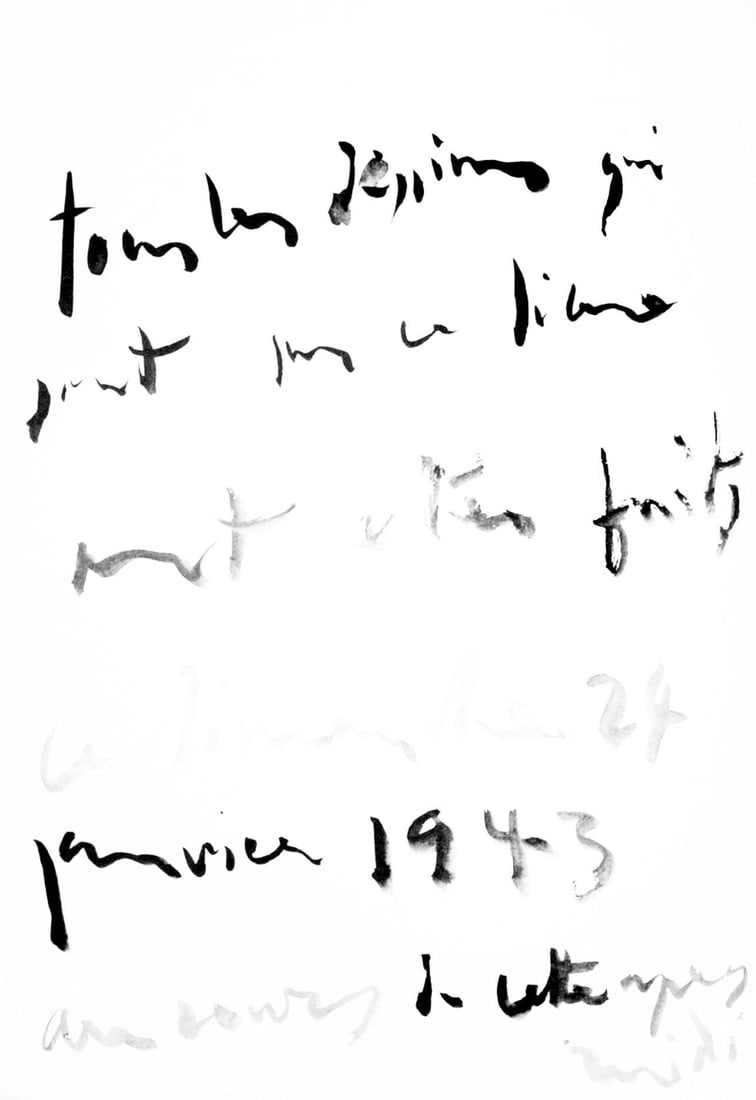 tous les dessins qui
sont sur ce livre
ont etes faits
ce dimanche 24
janvier 1943
au cours de cette apres
midi